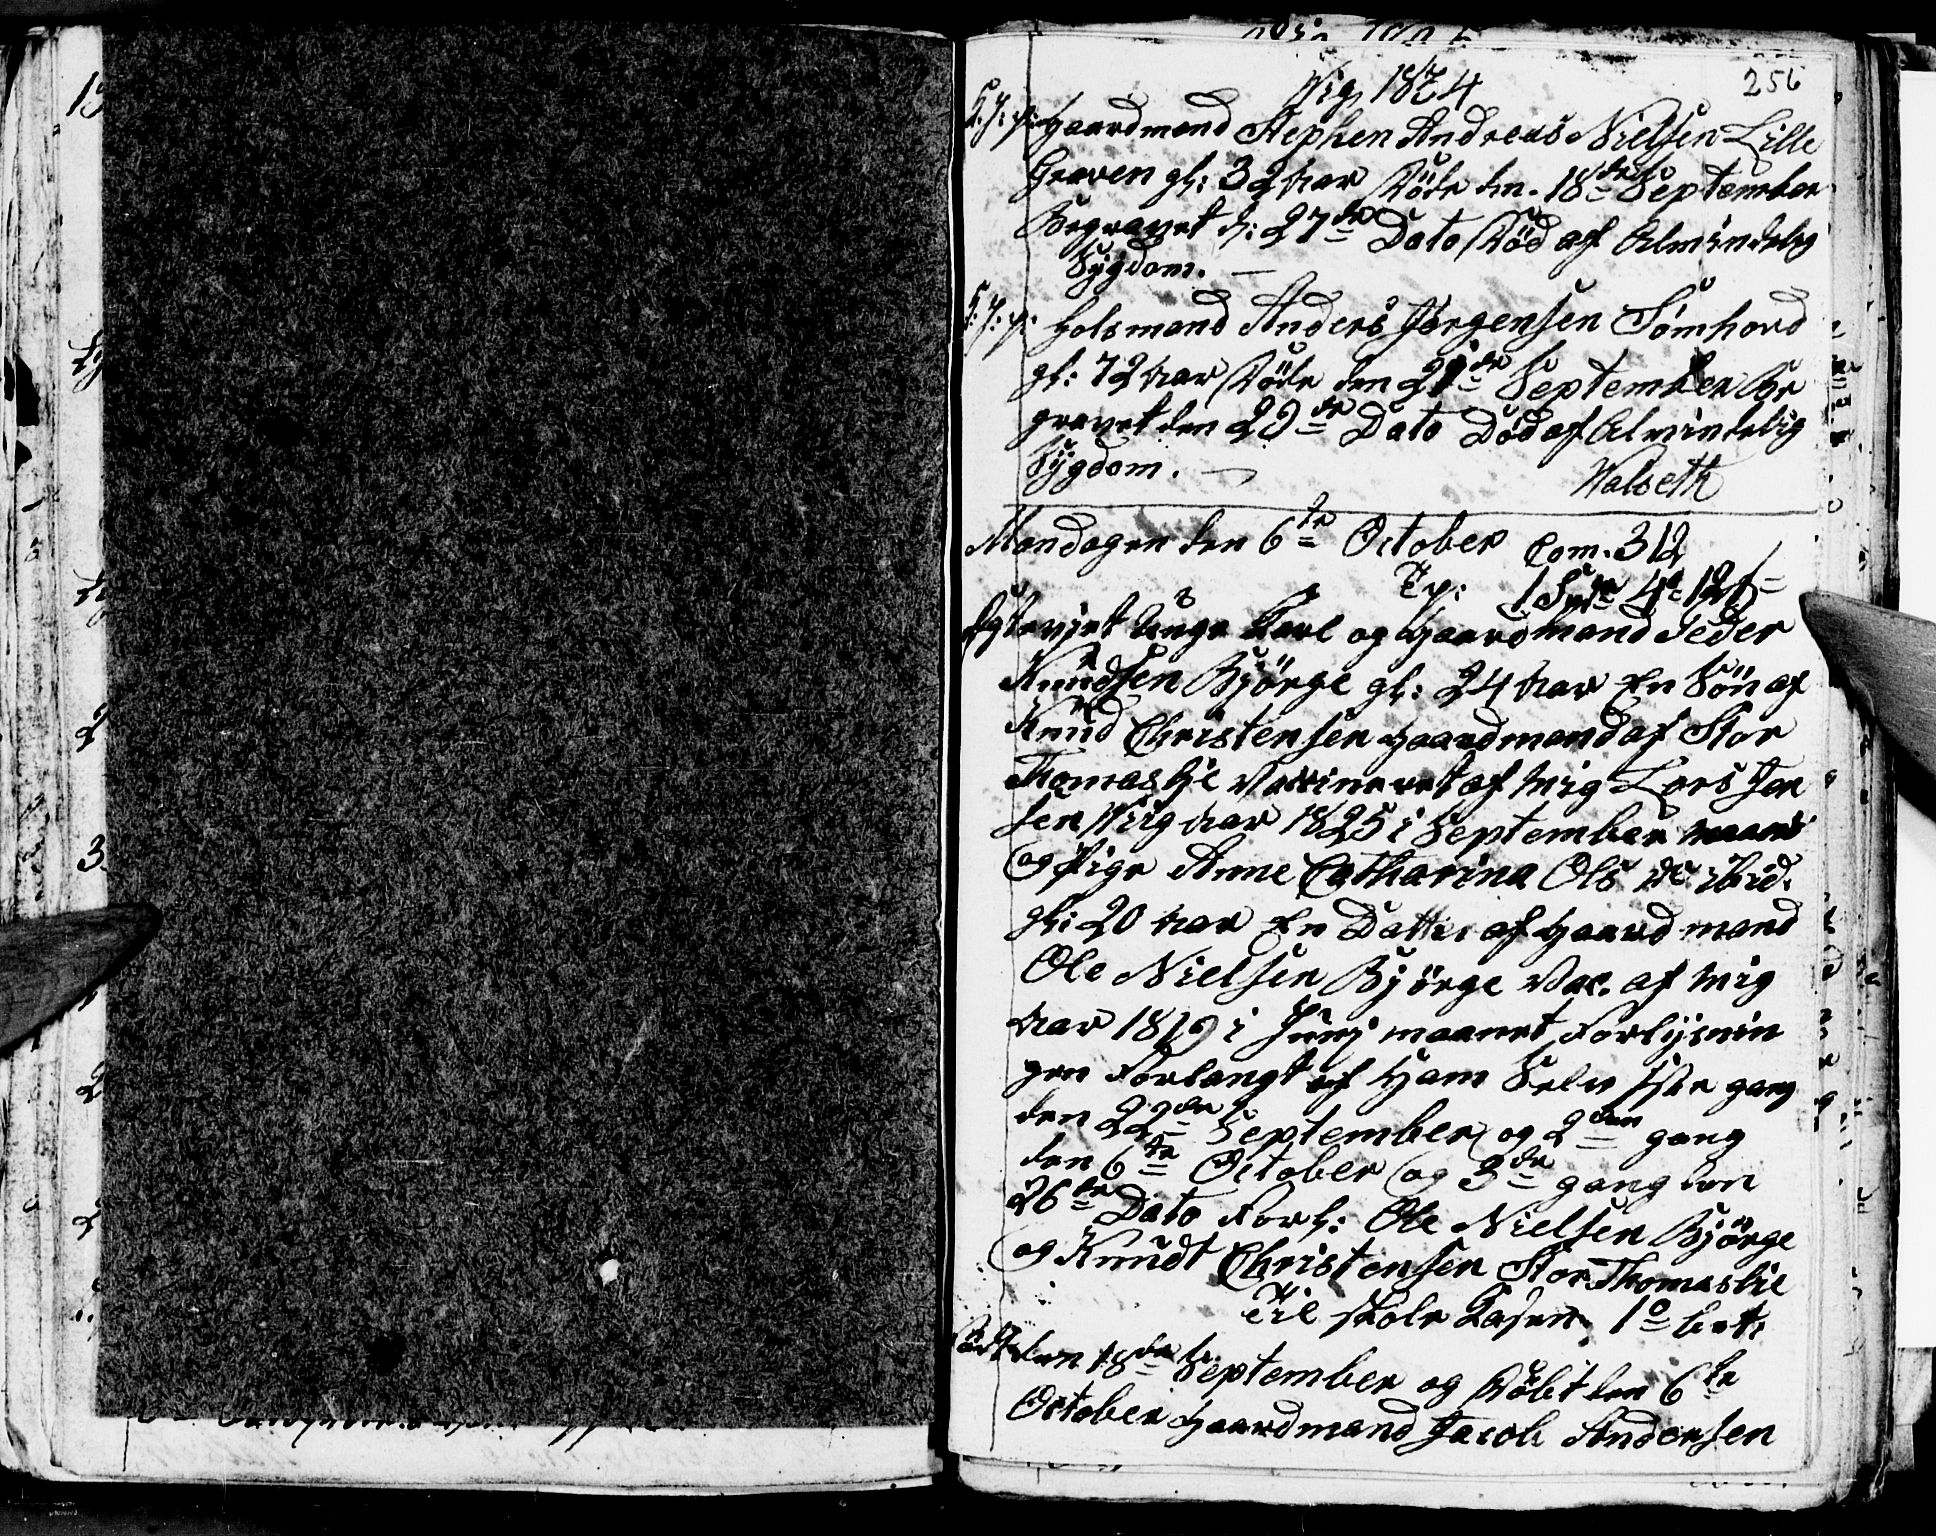 Wiig 1834
256
S: J: p: Gaardmand Stephen Andreas Nielsen Lille
Graven gl: 32 Aar Döde den 18de September
Begravet d: 27de Dato Död af Almindelig
Sÿgdom.
S: J: p: Holsmand Anders Jörgensen Sömhovd
gl: 72 Aar Döde den 21de September Be
gravet den 29de Dato Död af Almindelig
Sÿgdom.
Walseth
Mandagen den 6te October Com. 312
1 Spd 4
Egteviet Unge Karl og Gaardmand Peder
Knudsen Bjørge gl: 24 Aar En Sön af
Knud Christensen Gaardmand af Stor
Thomaslie Vaccineret af Mig Lars Jen
sen Wiig Aar 1825 i September maanet
og Pige Anne Catharina Ols Dr ibid.
gl: 20 Aar En Datter af Gaard mand
Ole Nielsen Bjørge Vac. af Mig
Aar 1819 i Junj maanet Forlysnin
gen Forlangt af Ham Selv 1ste gang
den 22de September og 2den gang
den 6te October og 3de gang den
26de Dato Forl: Ole Nielsen Björge
og Knudt Christensen Stor Thomaslie
Til Skole Casen 1 bet:
Födt den 18de September og Döbt den 6te
October Gaardmand Jacob Andersen